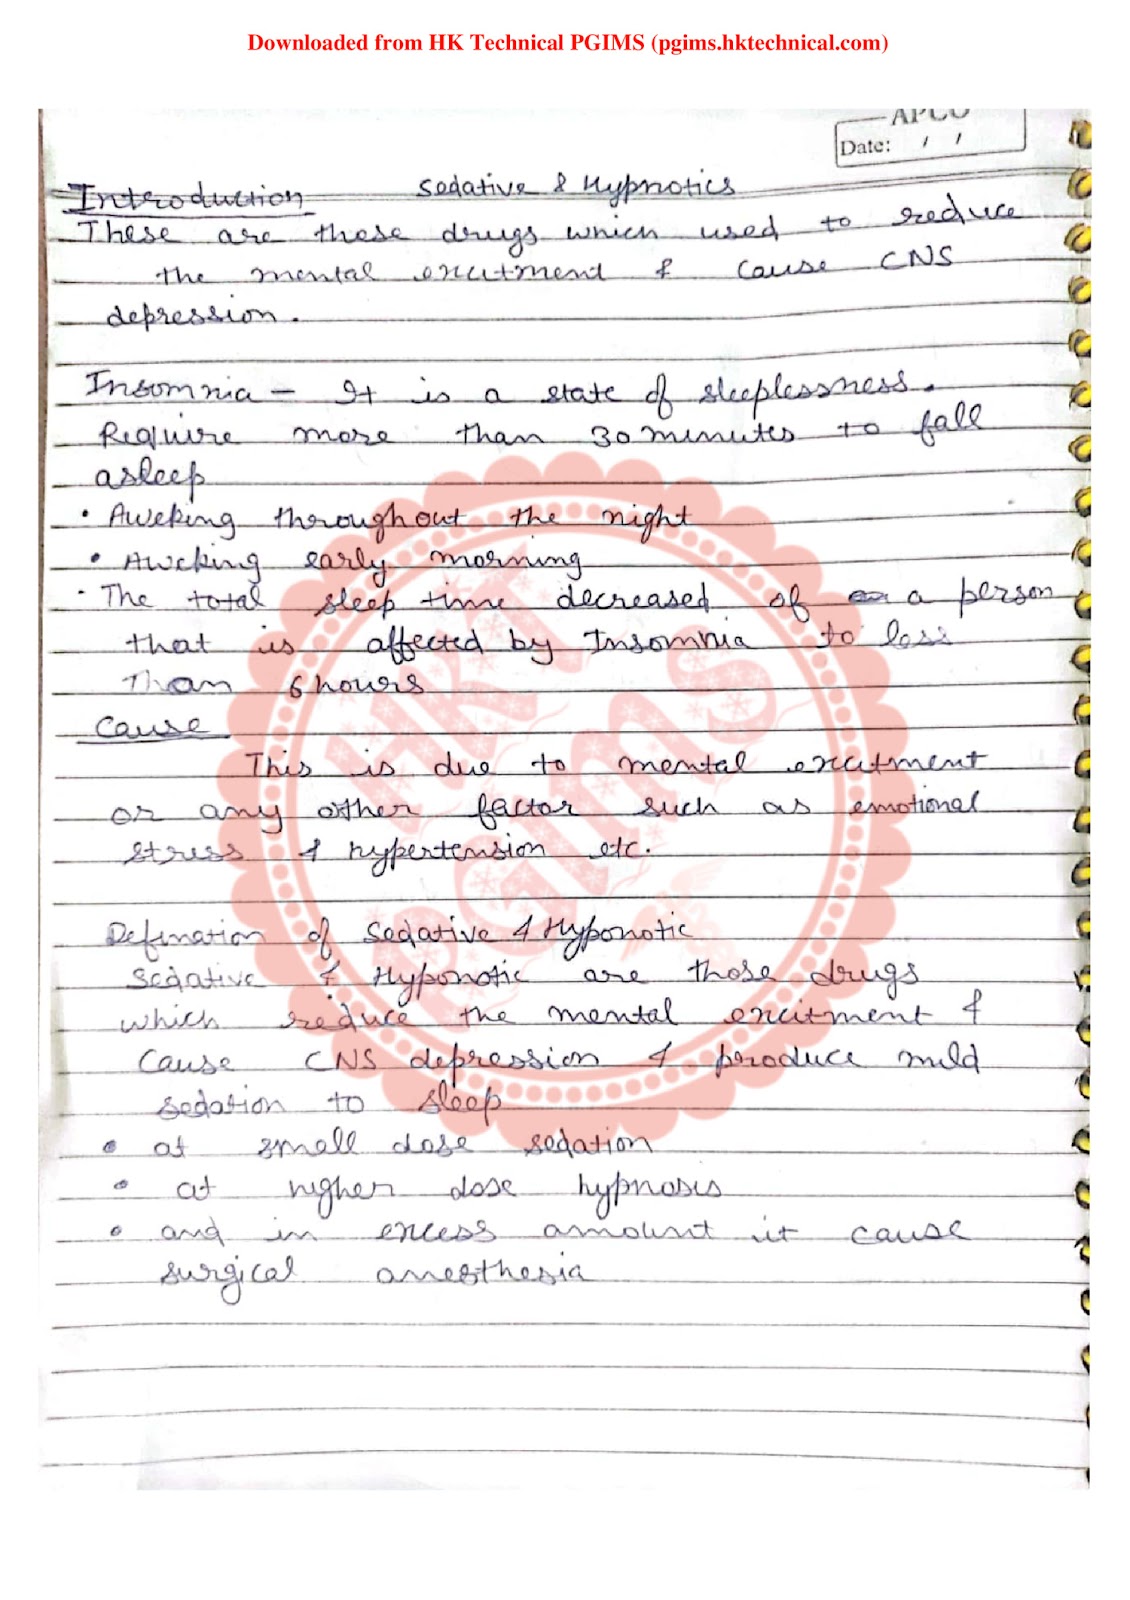 Downloaded from HK Technical PGIMS (pgims.hktechnical.com)
APCO
Date: / /
Introduction Sedative & Hypnotics
These are those drugs which used to reduce
the mental excitment & cause CNS
depression.
Insomnia - It is a state of sleeplessness.
Require more than 30 minutes to fall
asleep
• Aweking throughout the night
• Aweking early morning
• The total sleep time decreased of a person
that is affected by Insomnia to less
Than 6 hours
Cause
This is due to mental excitment
or any other factor such as emotional
stress & hypertension etc.
Defination of Sedative & Hyponotic
Sedative & Hyponotic are those drugs
which reduce the mental excitment &
Cause CNS depression & produce mild
sedation to sleep
• at small dose sedation
• at higher dose hypnosis
• and in excess amount it cause
surgical anesthesia
HKT
PGIMS